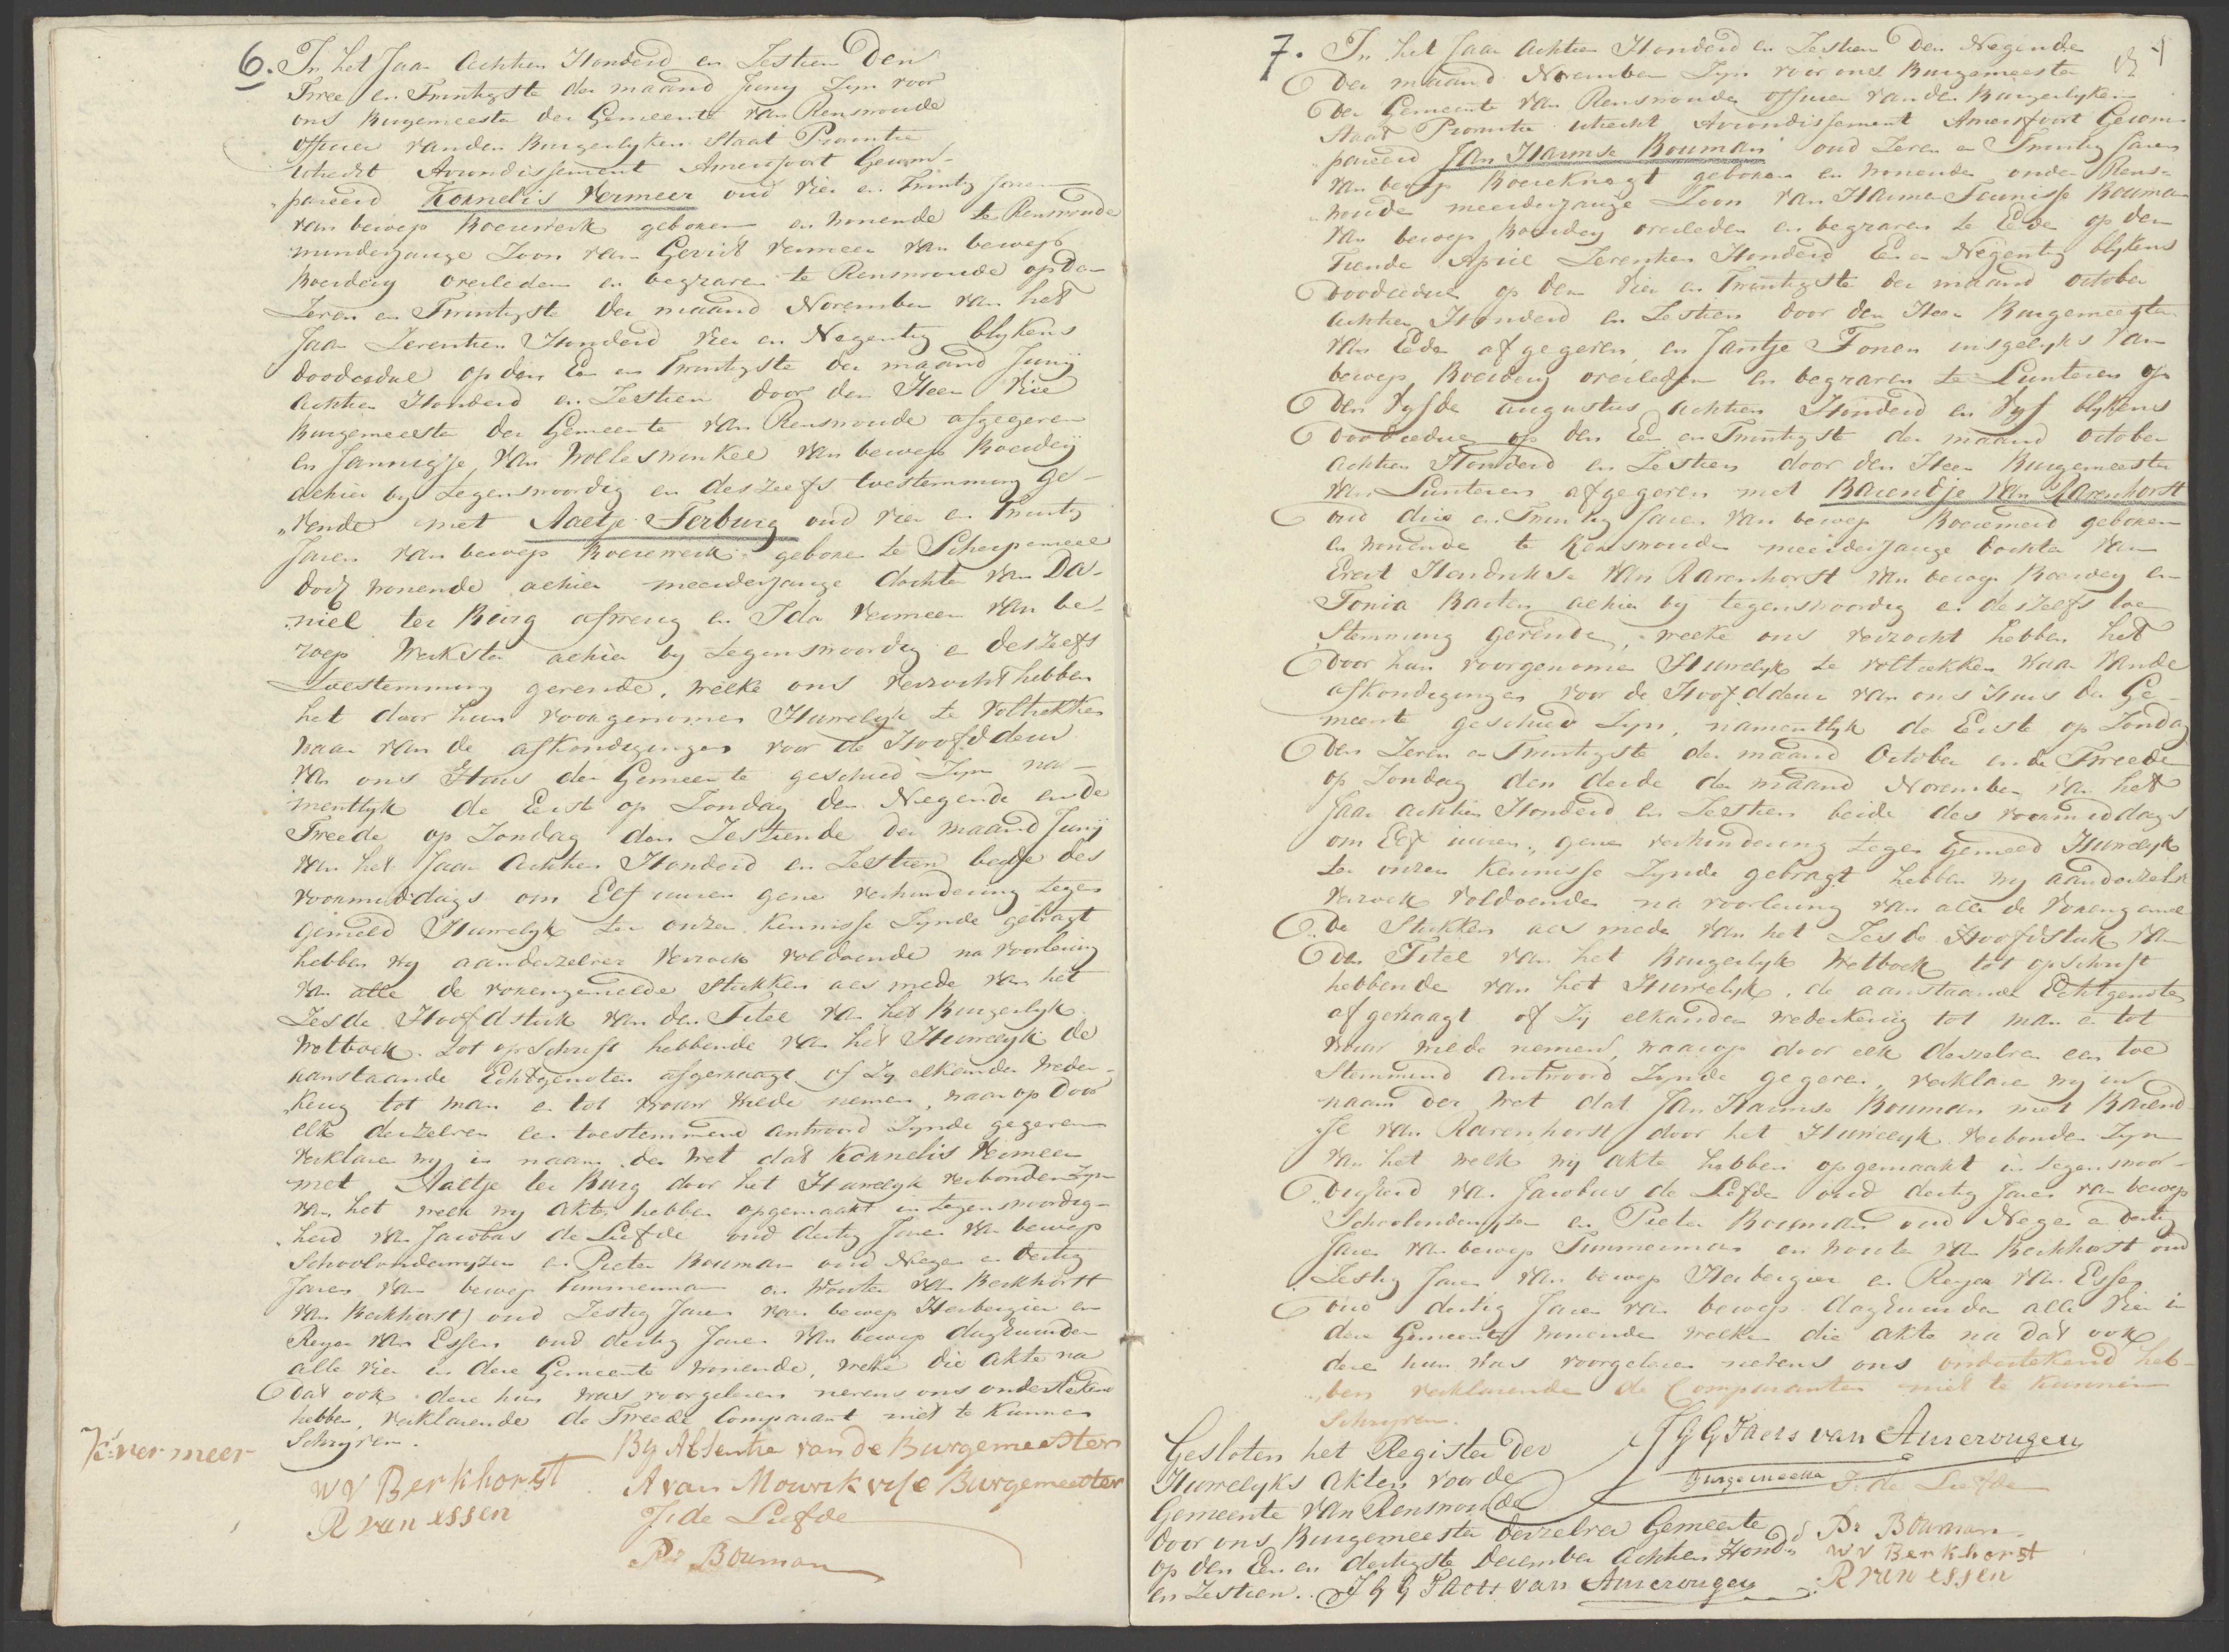 6. In het Jaar Achtien Honderd en Zestien Den
Twee en Twintigste der maand Junij Zyn voor
ons Burgemeester der Gemeente van Renswoude
officier vanden Burgerlyken Staat Provintie
Utrecht Arrondissement Amersfoort Gecom-
„pareerd Kornelis Vermeer oud vier en Twintig Jaren
van beroep Boerewerk geboren en wonende te Renswoude
minderjarige Zoon van Gerrit Vermeer van beroep
Boerdery overleden en begraven te Renswoude op den
Zeven en Twintigste der maand November van het
Jaar Zeventien Honderd vier en Negentig blykens
doodcedul op den Een en Twintigste der maand Junij
achtien Honderd en Zestien door den Heer
Burgemeester der Gemeente van Renswoude afgegeven
en Jannigje van Wolleswinkel van beroep Boerderij
alhier by tegenswoordig en deszelfs toestemming ge-
„vende met Aaltje Terburg oud vier en Twintig
Jaren van beroep Boerewerk geboren te Scherpenzeel
doch wonende alhier meerderjarige dochter van Da-
„niel ter Burg afwezig en Ida Vermeer van be-
roep Werkster alhier by tegenswoordig en deszelfs
toestemming gevende, welke ons verzocht hebben
het door hun voorgenomen Huwelyk te voltrekken
waar van de afkondigingen voor de Hoofddeur
van ons Huis der Gemeente geschied Zyn na-
mentlyk de Eerste op Zondag den Negende en de
Tweede op Zondag den Zestiende der maand Junij
van het Jaar Achtien Honderd en Zestien beyde des
voormiddags om Elf uuren gene verhindering tegen
gemeld Huwelyk ter onzer kennisse Zynde gebragt
hebben wy aanderzelver verzoek voldoende na voorlezing
van alle de vorengemelde stukken als mede van het
Zesde Hoofdstuk van den Titel van het Burgerlyk
Wetboek tot opschrift hebbende van het Huwelyk de
aanstaande Echtgenoten afgevraagt of Zy elkander weder-
„kerig tot man en tot vrouw wilde nemen, waar op door
elk derzelven een toestemmend antwoord Zynde gegeven
verklaren wy in naam der wet dat Kornelis Vermeer
met Aaltje ter Burg door het Huwelyk verbonden Zyn
van het welk wy akte hebben opgemaakt in tegenswoordig-
„heid van Jacobus de Liefde oud dertig Jaren van beroep
Schoolonderwyzer en Pieter Bouman oud Negen en dertig
Jaren van beroep Timmerman en Wouter van Berkhorst
van Berkhorst) oud Zestig Jaren van beroep Herbergier en
Reyer van Essen oud dertig Jaren van beroep daghuurder
alle vier in dese Gemeente wonende, welke die akte na
dat ook dese hun was voorgelesen nevens ons ondertekend
hebben, verklarende de Tweede Comparant niet te kunnen
Schryven.
Ks: vermeer
By Absentie van de Burgemeester
W V Berkhorst
A van Mourik vise Burgemeester
R van essen
J: de Liefde
Pr Bouman
7. In het Jaar Achtien Honderd en Zestien Den Negende
Der maand November Zyn voor ons Burgemeester
Der Gemeente van Renswoude officier vanden Burgerlyken
Staat Provintie Utrecht Arrondissement Amersfoort Gecom-
„pareerd Jan Harmse Bouman oud Zeven en Twintig Jaren
van beroep Boereknegt geboren en wonende onder Rens-
„woude meerderjarige Zoon van Harmen Teunisse Bouman
van beroep Boerdery overleden en begraven te Ede op den
Tiende April Zeventien Honderd Een en Negentig blykens
Doodcedul op den vier en Twintigste der maand october
Achtien Honderd en Zestien door den Heer Burgemeester
van Ede afgegeven, en Jantje Tonen insgelyks van
beroep Boerdery overleden en begraven te Lunteren op
Den vyfde augustus achtien Honderd en vyf blykens
Doodcedul op den Een en Twintigste der maand october
achtien Honderd en Zestien door den Heer Burgemeester
van Lunteren afgegeven met Barentje van Ravenhorst
oud drie en Twintig Jaren van beroep Boeremeid geboren
en wonende te Renswoude meerderjarige dochter van
Evert Hendrikse van Ravenhorst van beroep Boerdery en
Tonia Barten alhier bij tegenswoordig en deszelfs toe
Stemming gevende, welke ons verzocht hebben het
Door hun voorgenomen Huwelyk te voltrekken waar vande
afkondigingen voor de Hoofddeur van ons Huis der Ge-
meente geschied Zyn, namentlyk de Eerste op Zondag
Den Zeven en Twintigste der maand October en de Tweede
op Zondag den derde der maand November van het
Jaar achtien Honderd en Zestien beide des voormiddags
om Elf uuren, gene verhindering tegen gemeld Huwelyk
ter onzer kennisse Zynde gebragt hebben wy aanderzelver
verzoek voldoende na voorlezing van alle de vorengemel
De stukken als mede van het Zesde Hoofdstuk van
Den Titel van het Burgerlyk Wetboek tot opschrift
hebbende van het Huwelyk, de aanstaande Echtgenoten
afgevraagt of Zy elkander wederkerig tot man en tot
vrouw wilde nemen, waar op door elk derzelven een toe
Stemmend antwoord Zynde gegeven, verklaren wy in
naam der wet dat Jan Harmse Bouman met Barend
„je van Ravenhorst door het Huwelyk verbonden Zyn
van het welk wij akte hebben opgemaakt in tegenswoor-
Digheid van Jacobus de Liefde oud dertig Jaren van beroep
Schoolonderwyzer en Pieter Bouman oud Negen en dertig
Jaren van beroep Timmerman en Wouter van Berkhorst oud
Zestig Jaren van beroep Herbergier en Reyer van Essen
oud dertig Jaren van beroep daghuurder alle vier in
dese Gemeente wonende welke die akte na dat ook
dese hun was voorgelesen nevens ons ondertekend heb-
„ben verklarende de Comparanten niet te kunnen
Schryven.
J G G Taets van Amerongen
Burgemeester
J: de Liefde
Pr Bouman
W V Berkhorst
R van essen
Gesloten het Register der
Huwelyks Akten voor de
Gemeente van Renswoude
Door ons Burgemeester derzelver Gemeente
op den Een en dertigste December Achtien Hond:
en Zestien. J G G Taets van Amerongen